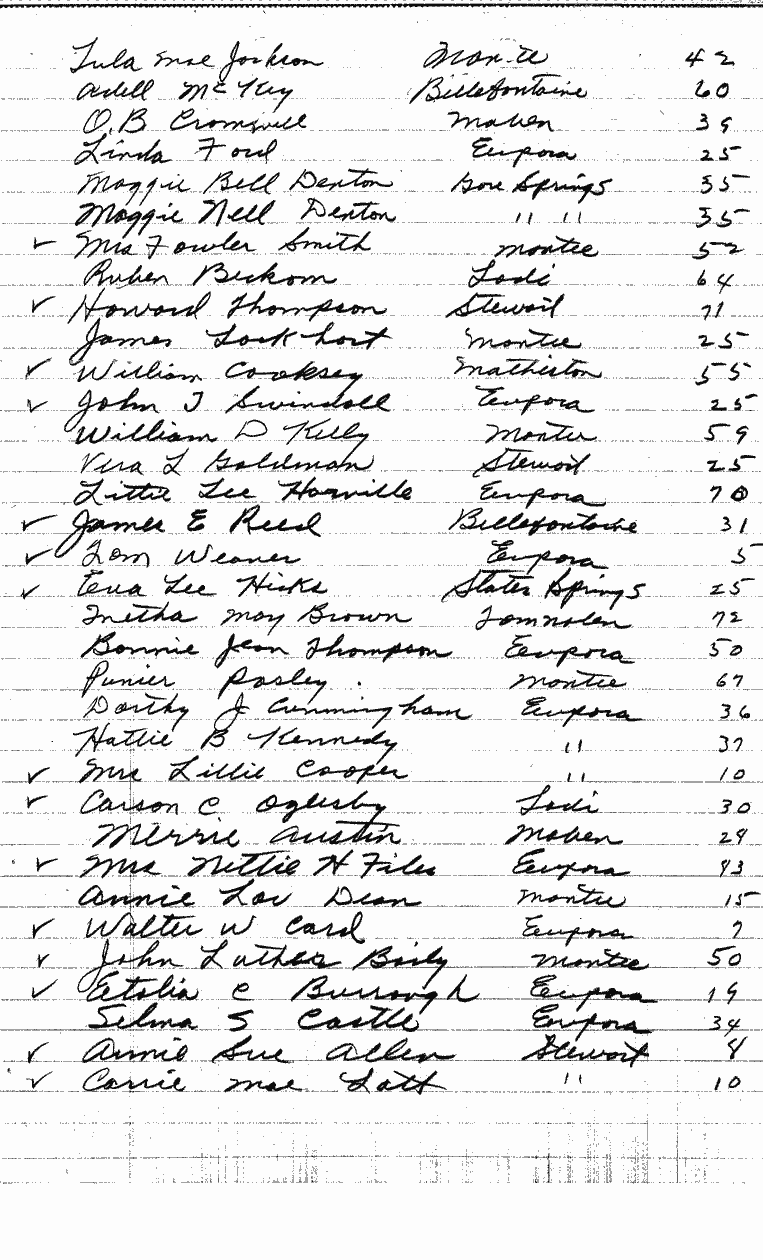 Lula Mae Jackson Mantee 42
Adell McKey Bellefontaine 60
O.B Cromwell Maben 39
Linda Ford Eupora 25
Maggie Bell Denton Gore Springs 35
Maggie Nell Denton " " 35
✓ Mrs Fowler Smith Mantee 52
Ruben Beckom Lodi 64
✓ Howard Thompson Stewart 71
James Lockhart Mantee 25
✓ William Cooksey Mathiston 55
✓ John T Swindoll Eupora 25
William D Kelly Mantee 59
Vera L Goldman Stewart 25
Littie Lee Harville Eupora 70
✓ James E Reed Bellefontaine 31
✓ Tom Weaver Eupora 5
✓ Eva Lee Hicks Slates Springs 25
Inetha May Brown Tomnolen 72
Bonnie Jean Thompson Eupora 50
Punier Pasley Mantee 67
Dorthy J Cunningham Eupora 36
Hattie B Kennedy " 37
✓ Mrs Lillie Cooper " 10
✓ Carson C Oglesby Lodi 30
Merrie Austin Maben 29
✓ Mrs Nettie H Files Eupora 43
Annie Lou Dean Mantee 15
✓ Walter W Card Eupora 7
✓ John Luther Baily Mantee 50
✓ Etolia C Burrough Eupora 19
Selma S Castle Eupora 34
✓ Annie Sue Allen Stewart 8
✓ Carrie Mae Latt " 10